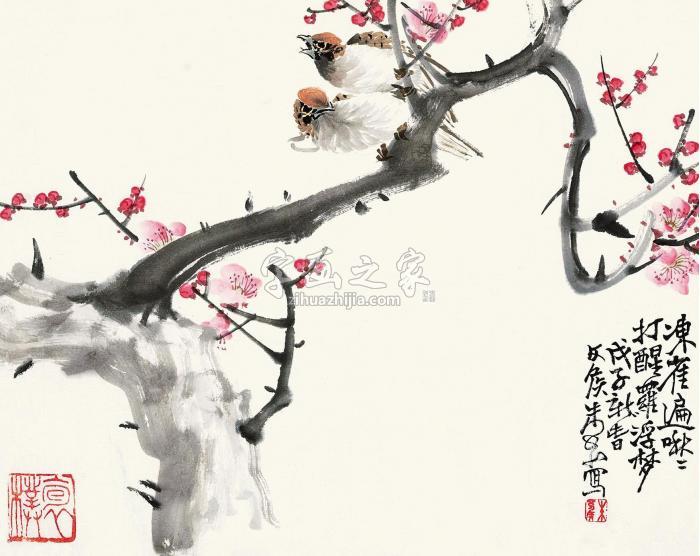 凍雀遍啾〻
打醒羅浮梦
戊子新春
文侯朱山写
字画之家
zihuazhijia.com